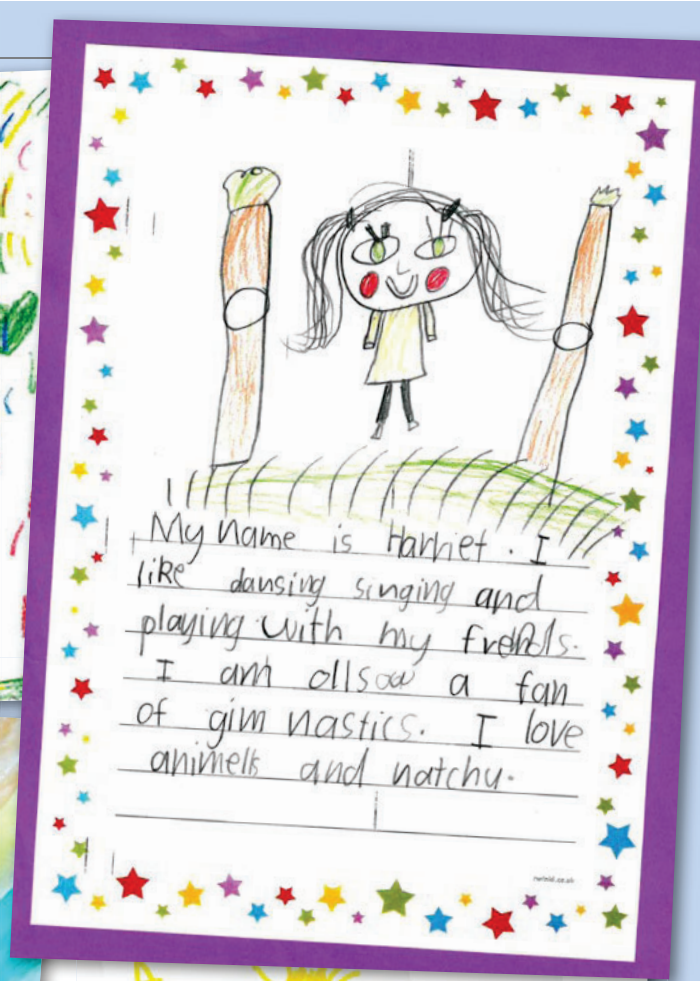 My name is Harriet. I
like dansing singing and
playing with my
I am ollsow a fan
of gim nastics. I love
animells and natchu.